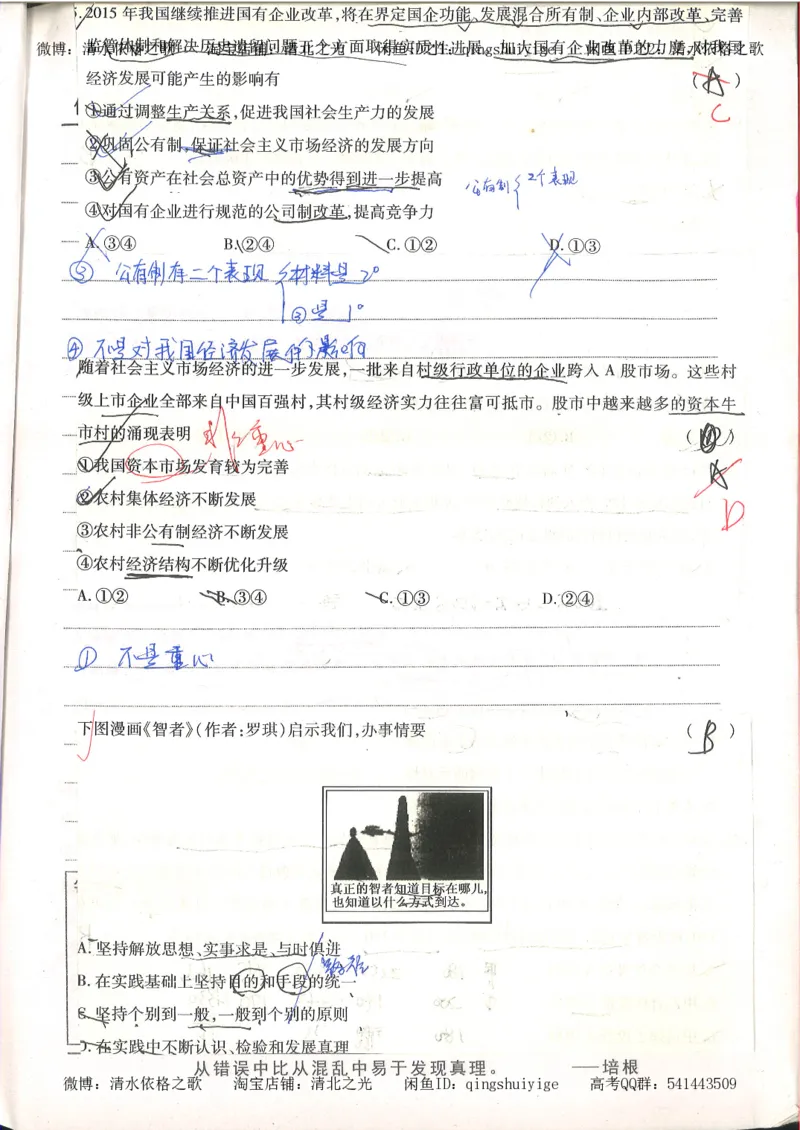 5.2015年我国继续推进国有企业改革,将在界定国企功能、发展混合所有制、企业内部改革、完善
监管体制和解决历史遗留问题五个方面取得实质性进展。加大国有企业改革的力度,对我国
微博：清水依格之歌 淘宝店铺：清北之光 闲鱼ID：qingshuiyige
经济发展可能产生的影响有 (A)
C
①通过调整生产关系,促进我国社会生产力的发展
②巩固公有制,保证社会主义市场经济的发展方向
③公有资产在社会总资产中的优势得到进一步提高
公有制 2个表现
④对国有企业进行规范的公司制改革,提高竞争力
A.③④ B.②④ C.①② D.①③
③ 公有制有二个表现 材料是2°
③是1°
④不是对我国经济发展的影响
随着社会主义市场经济的进一步发展,一批来自村级行政单位的企业跨入A股市场。这些村
级上市企业全部来自中国百强村,其村级经济实力往往富可抵市。股市中越来越多的资本牛
市村的涌现表明
重心
①我国资本市场发育较为完善
A
②农村集体经济不断发展
D
③农村非公有制经济不断发展
④农村经济结构不断优化升级
A.①② B.③④ C.①③ D.②④
① 不是重心
下图漫画《智者》(作者:罗琪)启示我们,办事情要 (B)
真正的智者知道目标在哪儿,
也知道以什么方式到达。
A.坚持解放思想、实事求是、与时俱进
B.在实践基础上坚持目的和手段的统一
C.坚持个别到一般,一般到个别的原则
D.在实践中不断认识、检验和发展真理
从错误中比从混乱中易于发现真理。 ——培根
微博：清水依格之歌 淘宝店铺：清北之光 闲鱼ID：qingshuiyige 高考QQ群：541443509